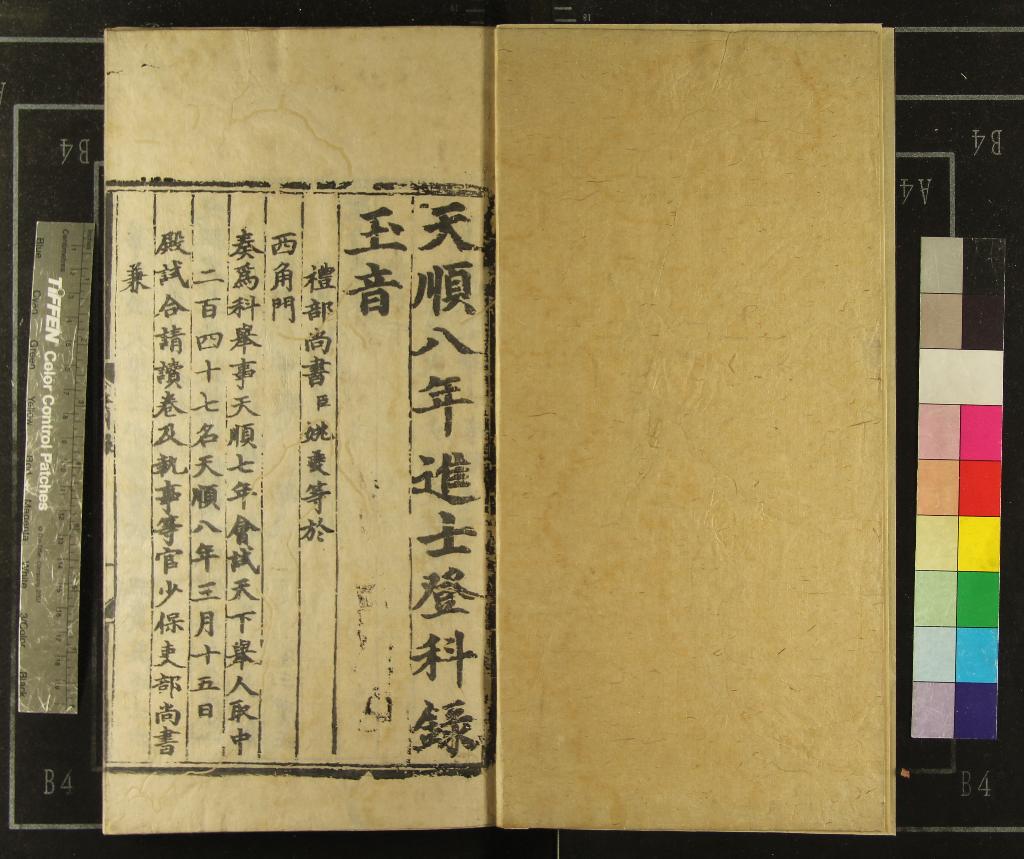 天順八年進士登科錄
玉音
禮部尚書臣姚夔等於
西角門
奏爲科舉事天順七年會試天下舉人取中
二百四十七名天順八年三月十五日
殿試合請讀卷及執事等官少保吏部尚書
兼
TIFFEN Color Control Patches
Blue
Cyan
Green
Yellow
Red
Magenta
White
3/Color
Black
Centimetres
B4
B4
A4
B4
B4